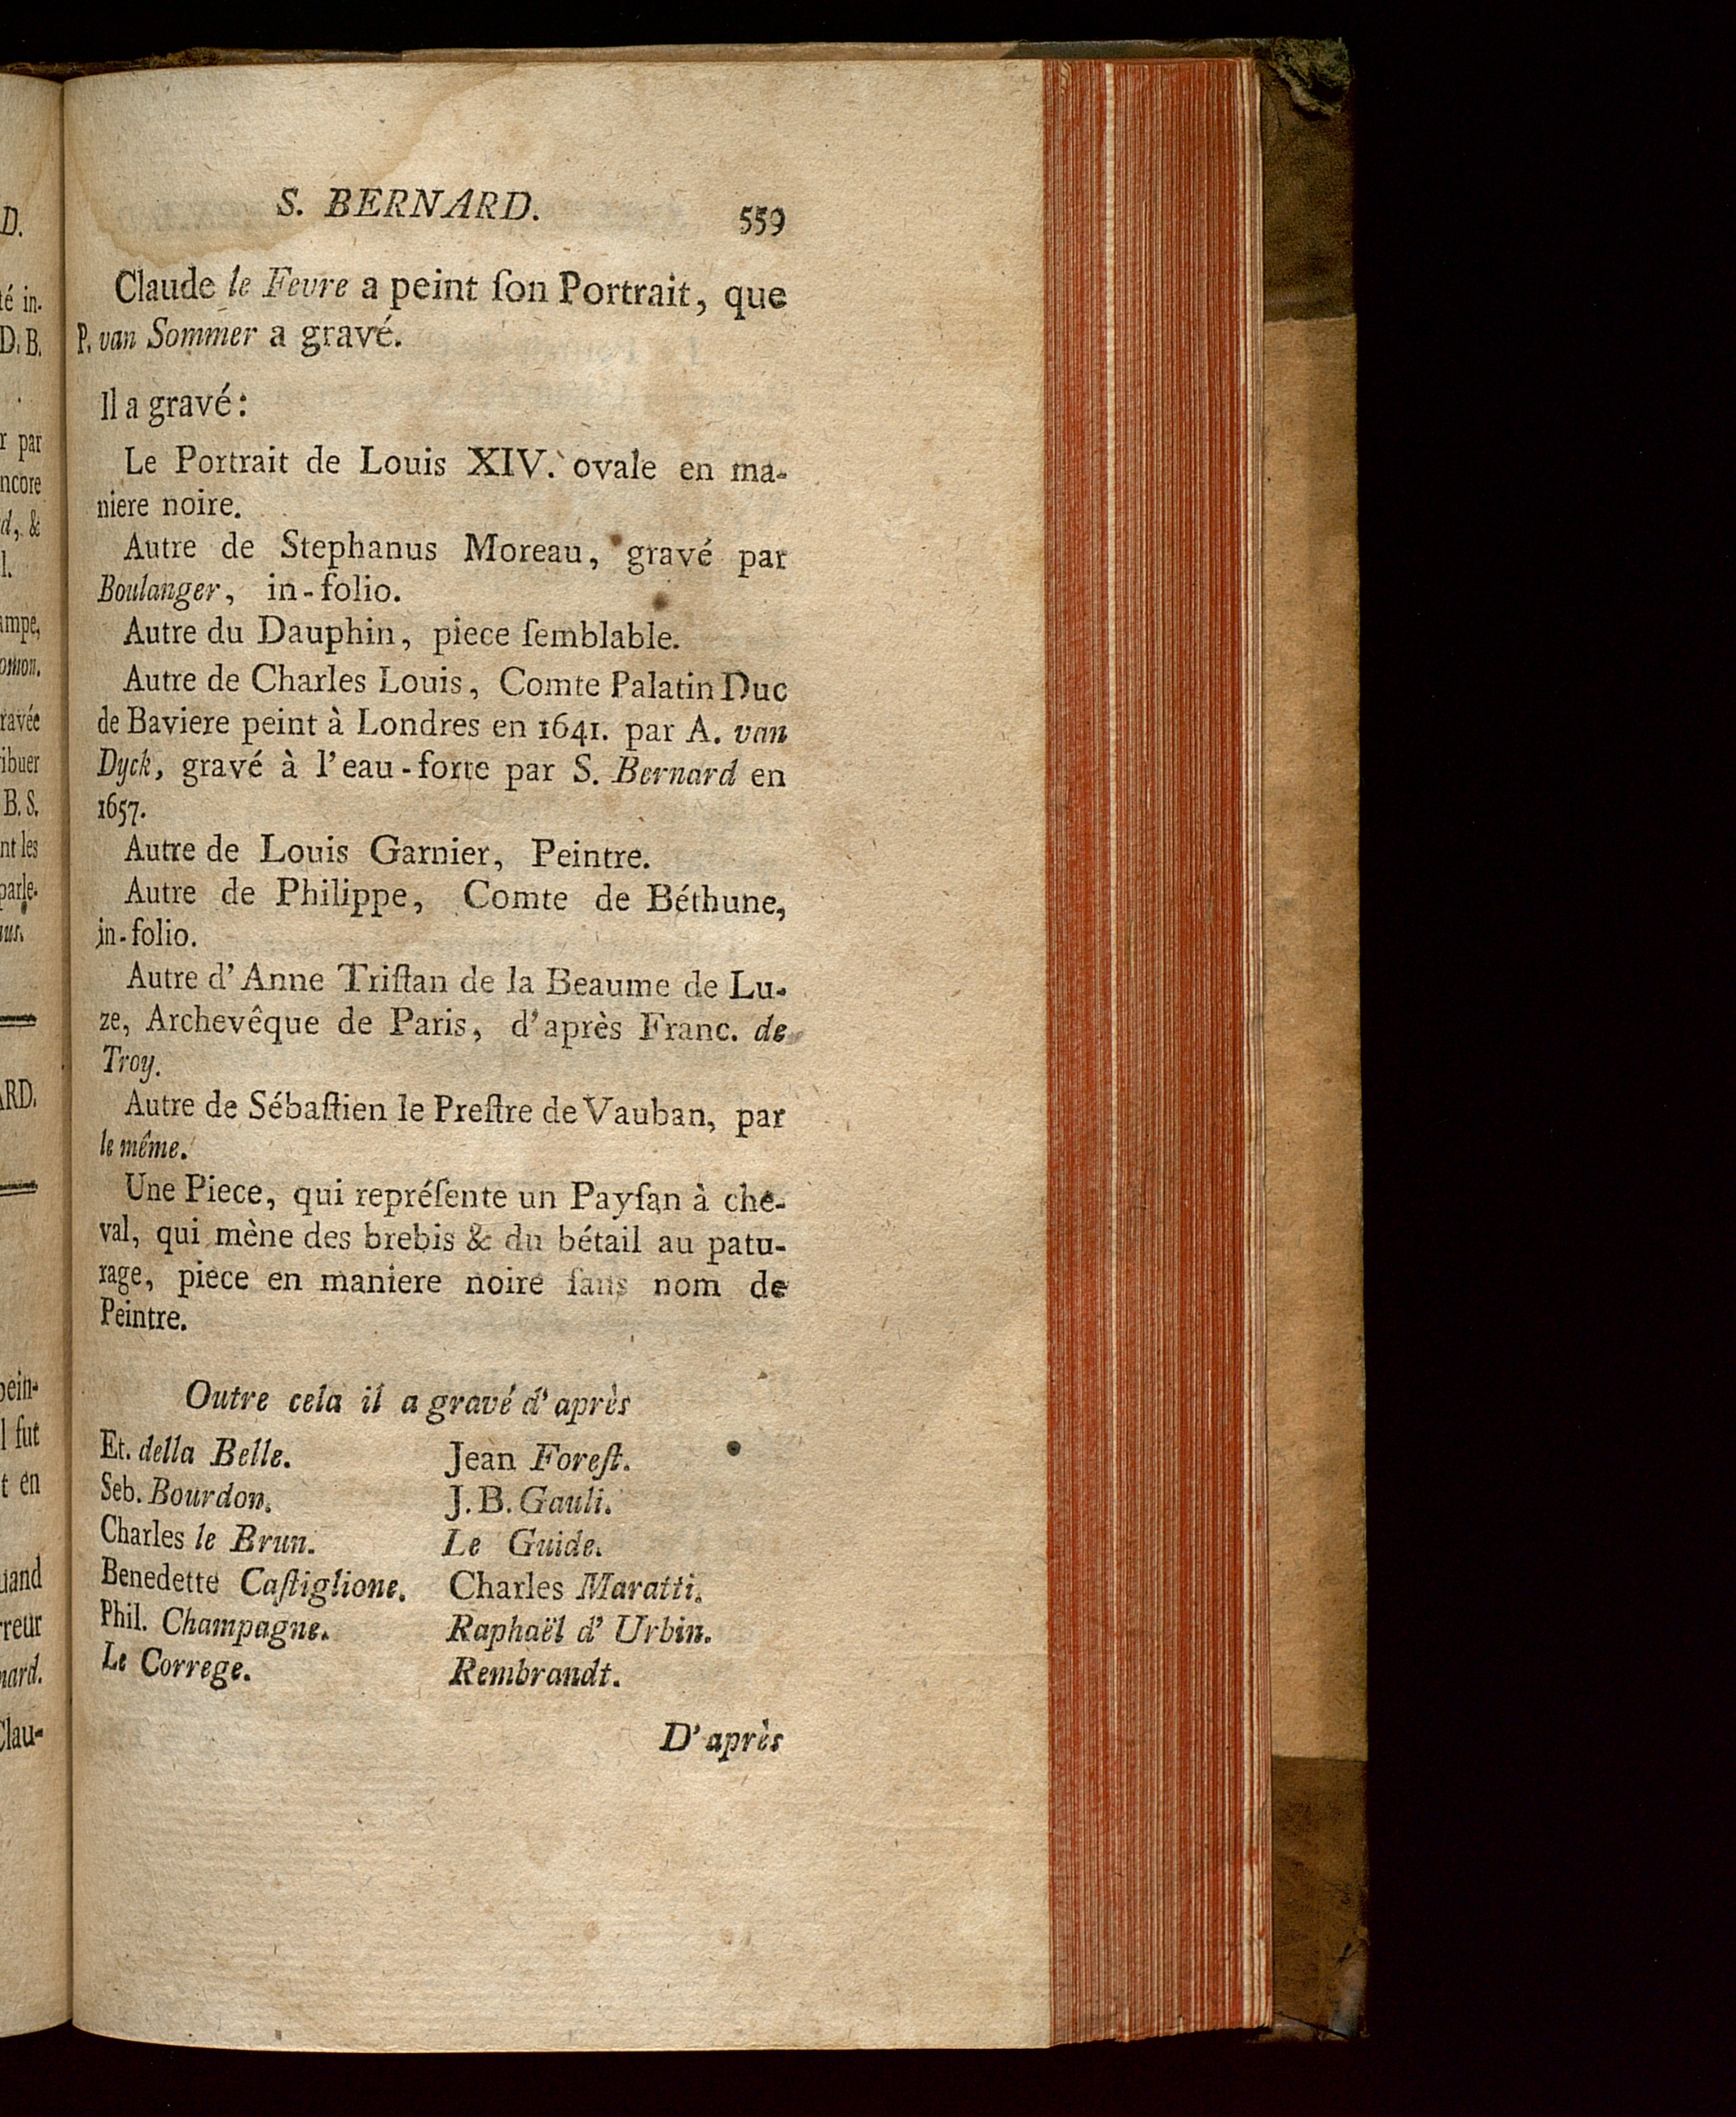 S. BERNARD. 559
Claude le Fevre a peint ſon Portrait, que
P. van Sommer a gravé.
Il a gravé:
Le Portrait de Louis XIV. ovale en ma-
niere noire.
Autre de Stephanus Moreau, gravé par
Boulanger, in-folio.
Autre du Dauphin, piece ſemblable.
Autre de Charles Louis, Comte Palatin Duc
de Baviere peint à Londres en 1641. par A. van
Dyck, gravé à l'eau-forte par S. Bernard en
1657.
Autre de Louis Garnier, Peintre.
Autre de Philippe, Comte de Béthune,
in-folio.
Autre d'Anne Triſtan de la Beaume de Lu-
ze, Archevêque de Paris, d'après Franc. de
Troy.
Autre de Sébaſtien le Preſtre de Vauban, par
le même.
Une Piece, qui repréſente un Payſan à che-
val, qui mène des brebis & du bétail au patu-
rage, piece en maniere noire ſans nom de
Peintre.
Outre cela il a gravé d'après
Et. della Belle. Jean Foreſt.
Seb. Bourdon. J. B. Gauli.
Charles le Brun. Le Guide.
Benedette Caſtiglione. Charles Maratti.
Phil. Champagne. Raphaël d'Urbin.
Le Correge. Rembrandt.
D'après